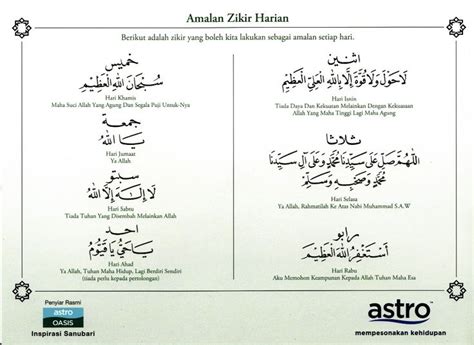 Amalan Zikir Harian
Berikut adalah zikir yang boleh kita lakukan sebagai amalan setiap hari.
اثنين
لَا حَوْلَ وَلَا قُوَّةَ إِلَّا بِاللهِ الْعَلِيِّ الْعَظِيْمِ
Hari Isnin
Tiada Daya Dan Kekuatan Melainkan Dengan Kekuasaan
Allah Yang Maha Tinggi Lagi Maha Agung
ثلاثا
اللَّهُمَّ صَلِّ عَلَى سَيِّدِنَا مُحَمَّدٍ وَعَلَى آلِ سَيِّدِنَا
مُحَمَّدٍ وَصَحْبِهِ وَسَلِّمْ
Hari Selasa
Ya Allah, Rahmatilah Ke Atas Nabi Muhammad S.A.W
رابو
أَسْتَغْفِرُ اللهَ الْعَظِيْمَ
Hari Rabu
Aku Memohon Keampunan Kepada Allah Tuhan Maha Esa
خميس
سُبْحَانَ اللهِ الْعَظِيْمِ
Hari Khamis
Maha Suci Allah Yang Agung Dan Segala Puji Untuk-Nya
جمعة
يَا اللهُ
Hari Jumaat
Ya Allah
سبتو
لَا إِلَهَ إِلَّا اللهُ
Hari Sabtu
Tiada Tuhan Yang Disembah Melainkan Allah
احد
يَا حَيُّ يَا قَيُّوْمُ
Hari Ahad
Ya Allah, Tuhan Maha Hidup, Lagi Berdiri Sendiri
(tiada perlu kepada pertolongan)
Penyiar Rasmi
astro
OASIS
Inspirasi Sanubari
astro
mempesonakan kehidupan